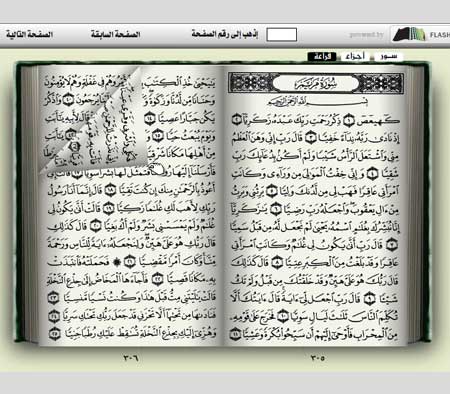 FLASH
powered by
إذهب إلى رقم الصفحة
الصفحة السابقة
الصفحة التالية
سور
أجزاء
قراءة
سورة مريم
بسم الله الرحمن الرحيم
كهيعص ١ ذكر رحمت ربك عبده زكريا ٢
إذ نادى ربه نداء خفيا ٣ قال رب إني وهن العظم
مني واشتعل الرأس شيبا ولم أكن بدعائك رب
شقيا ٤ وإني خفت الموالي من وراءي وكانت
امرأتي عاقرا فهب لي من لدنك وليا ٥ يرثني ويرث
من ءال يعقوب واجعله رب رضيا ٦ يزكريا
إنا نبشرك بغلم اسمه يحيى لم نجعل له من قبل سميا
٧ قال رب أنى يكون لي غلم وكانت امرأتي
عاقرا وقد بلغت من الكبر عتيا ٨ قال كذلك
قال ربك هو علي هين وقد خلقتك من قبل ولم تك
شيئا ٩ قال رب اجعل لي ءاية قال ءايتك ألا
تكلم الناس ثلث ليال سويا ١٠ فخرج على قومه
من المحراب فأوحى إليهم أن سبحوا بكرة وعشيا ١١
٣٠٥
ييحيى خذ الكتب
وحنانا من لدنا وزكوة
يكن جبارا عصيا ١٤
ويوم يبعث حيا
من أهلها مكانا شرقيا
فأرسلنا إليها
أعوذ بالرحمن منك إن كنت تقيا ١٨ قال إنما أنا رسول
ربك لأهب لك غلما زكيا ١٩ قالت أنى يكون لي
غلم ولم يمسسني بشر ولم أك بغيا ٢٠ قال كذلك
قال ربك هو علي هين ولنجعله ءاية للناس ورحمة
منا وكان أمرا مقضيا ٢١ فحملته فانتبذت
به مكانا قصيا ٢٢ فأجاءها المخاض إلى جذع النخلة
قالت يليتني مت قبل هذا وكنت نسيا منسيا ٢٣
فنادىها من تحتها ألا تحزني قد جعل ربك تحتك سريا ٢٤
وهزي إليك بجذع النخلة تسقط عليك رطبا جنيا ٢٥
٣٠٦